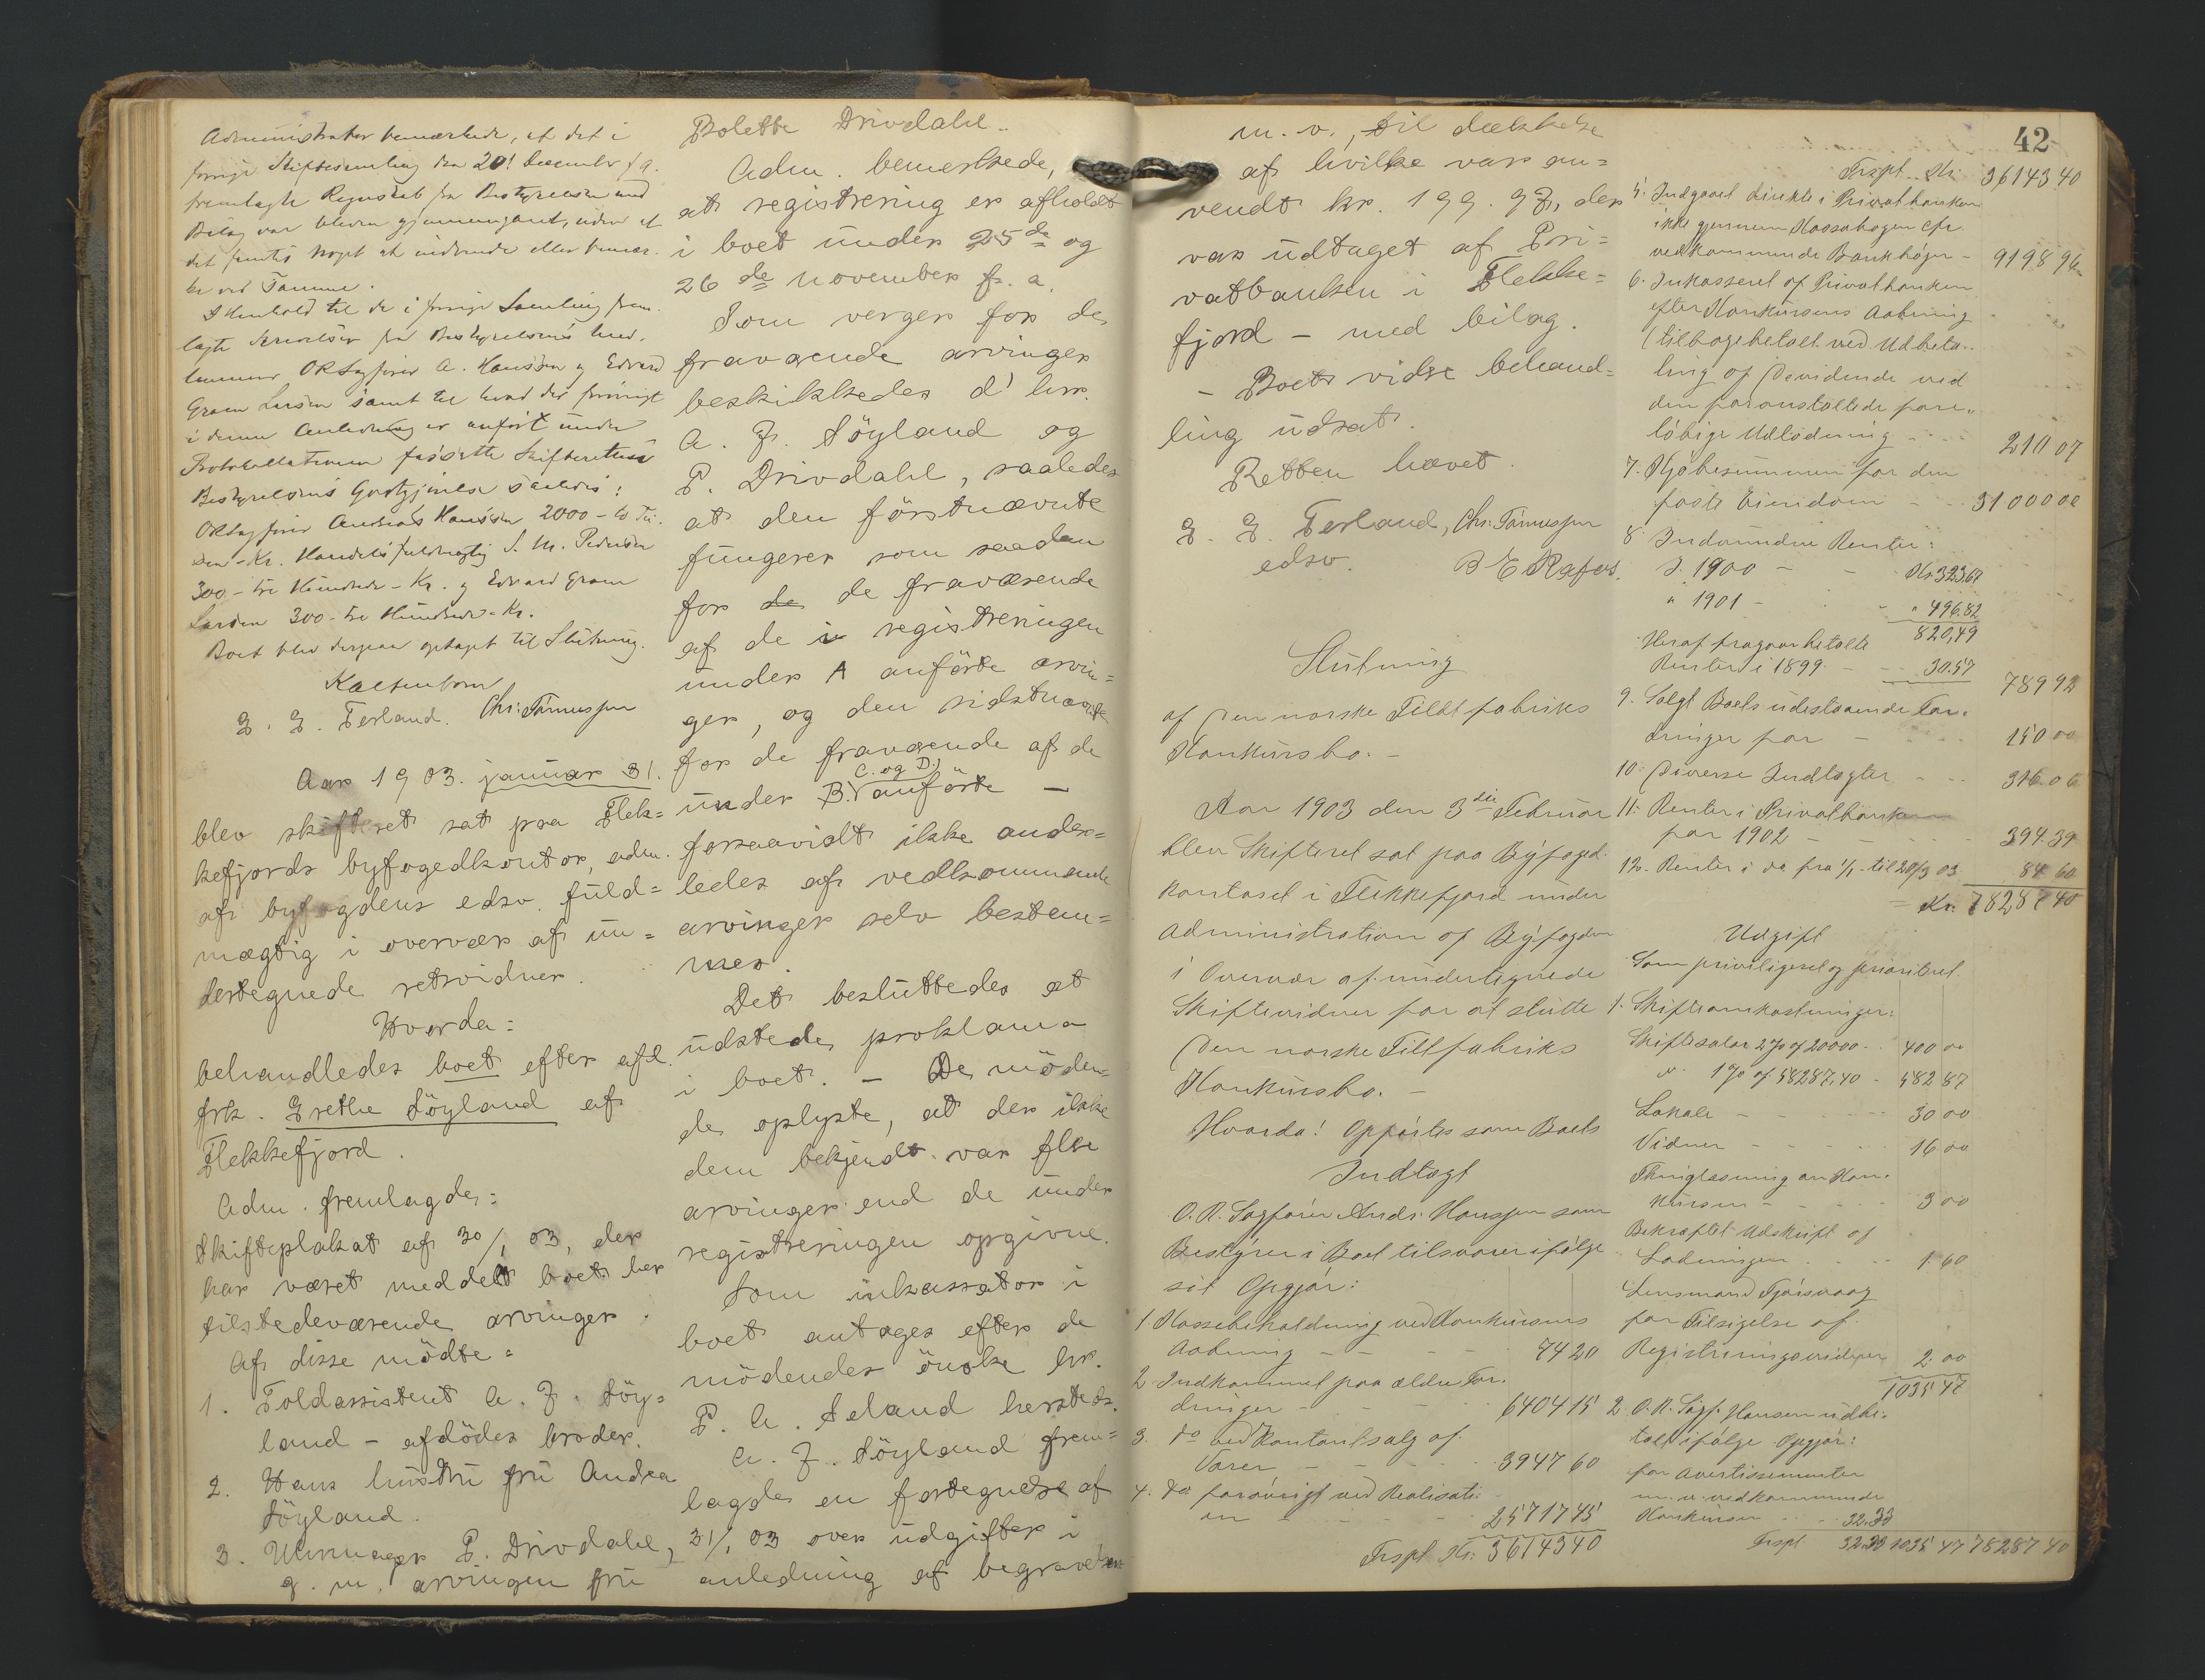 Administrator bemærkede, at det i
forrige Skiftesamling den 20! December f. a.
fremlagte Regnskab fra Bestyrelsen med
Bilag var bleven gjennemgaaet, uden at
det fandtes noget at indvende eller bemær-
ke ved Samme.
I Henhold til de i forrige Samling frem-
lagte Skrivelser fra Bestyrelsens Med-
lemmer ORSagfører A. Hanssen og Edvard
Gram Larsen samt til hvad der forøvrigt
i denne Anledning er anført under
Protokollationen fastsatte Skifteretten
Bestyrelsens Godtgjørelse saaledes:
ORSagfører Andreas Hanssen 2000 - to Tu-
sen - Kr. Handelsfuldmægtig S. M. Pedersen
300 - tre Hundrede - Kr. og Edvard Gram
Larsen 300 - tre Hundrede - Kr.
Boet blev derpaa optaget til Slutning.
Kaltenborn
G. G. Ferland. Chr: Tønnessen
Aar 1903. januar 31.
blev skifteret sat paa Flek=
kefjords byfogedkontor, adm.
af byfogdens edsv. fuld=
mægtig i overvær af un=
dertegnede retsvidner.
Hvorda:
behandledes boet efter afd.
frk. Grethe Söyland af
Flekkefjord.
Adm. fremlagde:
Skifteplakat af 30/1 03, der
har været meddelt boets her
tilstedeværende arvinger.
Af disse mödte:
1. Toldassistent A. Z. Söy=
land - afdödes broder.
2. Hans hustru fru Andrea
Söyland.
3. Urmager P. Drivdahl,
g. m. arvingen fru
Bolette Drivdahl.
Adm. bemerkede,
at registrering er afholdt
i boet under 25de og
26de november f. a.
Som verger for de
fraværende arvinger
beskikkedes d' hrr.
A. Z. Söyland og
P. Drivdahl, saaledes
at den förstnævnte
fungerer som saadan
for de de fraværende
af de i registreringen
under A anförte arvin=
ger, og den sidstnævnte
for de fraværende af de
C. og D.)
under B. anförte -
forsaavidt ikke ander=
ledes af vedkommende
arvinger selv bestem=
mes.
Det besluttedes at
udstede proklama
i boet. - De möden=
de oplyste, at der ikke
dem bekjendt var flere
arvinger end de under
registreringen opgivne.
Som inkassator i
boet antages efter de
mödendes önske hr.
P. A. Seland hersteds.
A. Z. Söyland frem=
lagde en fortegnelse af
31/1 03 over udgifter i
anledning af begravelsen
m. v., til dækkelse
af hvilke var an=
vendt kr. 199.97, der
var udtaget af Pri=
vatbanken i Flekke=
fjord - med bilag.
- Boets vidre behand=
ling udsat.
Retten hævet.
G. G. Ferland, Chr: Tønnessen
edsv. B E Rafos.
Slutning
af Den norske Tildtfabriks
Konkursbo. -
Aar 1903 den 3die Februar
blev Skifteret sat paa Byfoged-
kontoret i Flekkefjord under
Administration af Byfogden
i Overvær af undertegnede
Skiftevidner for at slutte
Den norske Tiltfabriks
Konkursbo. -
Hvorda! Opførtes som Boets
Indtægt
O.R. Sagfører Andr. Hanssen som
Bestyrer i Boet tilsvarer ifølge
sit Opgjør:
1 Kassebeholdning ved Konkursens
Aabning - - - 74 20
2 Indkommet paa ældre For-
dringer - - - 6404 15
3. do ved Kontantsalg af
Varer - - - 3947 60
4. do forøvrigt ved Realisati-
on - - - 25717 45
Trspt. Kr: 36143 40
42
Trspt. Kr: 36143 40
5. Indgaaet direkte i Privatbanken
ikke gjennem Kassabogen efr.
vedkommende Bankbøger - 9198 96
6. Inkasseret af Privatbanken
efter Konkursens Aabning
(tilbagebetalt ved Udbeta-
ling af Dividende ved
den foranstaltede fore-
løbige Udlodning - - 210 07
7. Kjøbesummen for den
faste Eiendom - - 31000 00
8 Indvundne Renter:
I 1900 - - Kr. 323.67
" 1901 - - " 496.82
820,49
Heraf fragaar betalte
Renter i 1899 - - 30.57
789 92
9. Solgt Boets udestaaende For-
dringer for - - 150 00
10: Diverse Indtægter - - 316.06
11: Renter i Privatbanken
for 1902 - - - 394.39
12. Renter i do fra 1/1 til 20/3 03 84 60
Kr. 78287 40
Udgift
Som priviligeret og prioriteret
1. Skifteomkostninger:
Skiftesalær 2% af 20000 - 400 00
" 1% af 58287,40 - 582 87
Lokale - - - 30 00
Vidner - - - 16 00
Thinglæsning om Kon-
kursen - - - 3 00
Bekræftet Udskrift af
Ladningen - - 1.60
Lensmand Fjørsvaag
for Tilsigelse af
Registreringsvidner 2.00
1035 47
2. O.R. Sagf. Hansen udbe-
talt ifølge Opgjør:
for Avertissementer
m. v. vedkommende
Konkursen - - 32.33
Trspt. 32.33 1035 47 78287 40